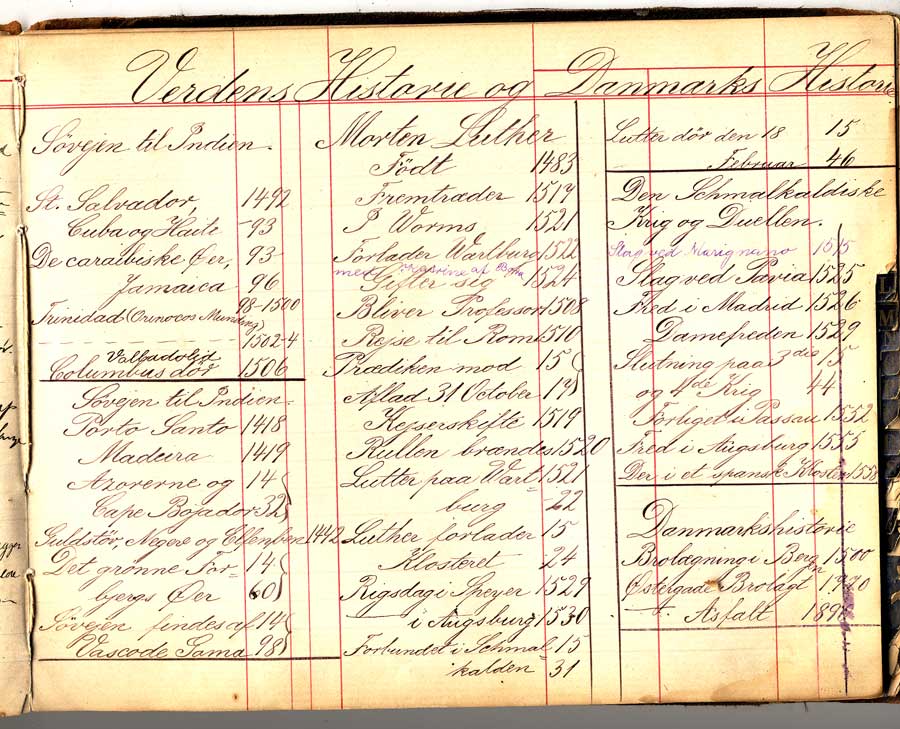 Verdens Historie og Danmarks Historie
Søvejen til Indien.
St. Salvador, 1492
Cuba og Haiti -93
De caraibiske Øer, 93
Jamaica 96
Trinidad (Orinocos Munding) 98-1500
1502-4
Valladolid
Columbus dör 1506
Søvejen til Indien
Porto Santo 1418
Madeira 1419
Azorerne og 14
Cape Bojador 32
Guldstöv, Negere og Elfenben 1442
Det grønne For-
bjergs Øer 14 60
Søvejen findes af 14
Vasco de Gama 98
Morten Luther
Födt 1483
Fremtræder 1517
I Worms 1521
Forlader Wartburg 1522
med af Bora
Gifter sig 1524
Bliver Professor 1508
Rejse til Rom 1510
Prædiken mod 15
Aflad 31 October 17
Kejserskifte 1519
Bullen brændes 1520
Lutter paa Wart 1521
burg -22
Luther forlader 15
Klosteret 24
Rigsdag i Speyer 1529
i Augsburg 1530
Forbundet i Schmal 15
kalden 31
Lutter dör den 18 15
Februar 46
Den Schmalkaldiske
Krig og Duellen.
Slag ved Marignano 1515
Slag ved Pavia 1525
Fred i Madrid 1526
Damefreden 1529
Slutning paa 3die 15
og 4de Krig 44
Forliget i Passau 1552
Fred i Augsburg 1555
Dør i et spansk Kloster 1558
Danmarkshistorie
Brolægning i Bergen 1500
Østergade Brolagt
Asfalt